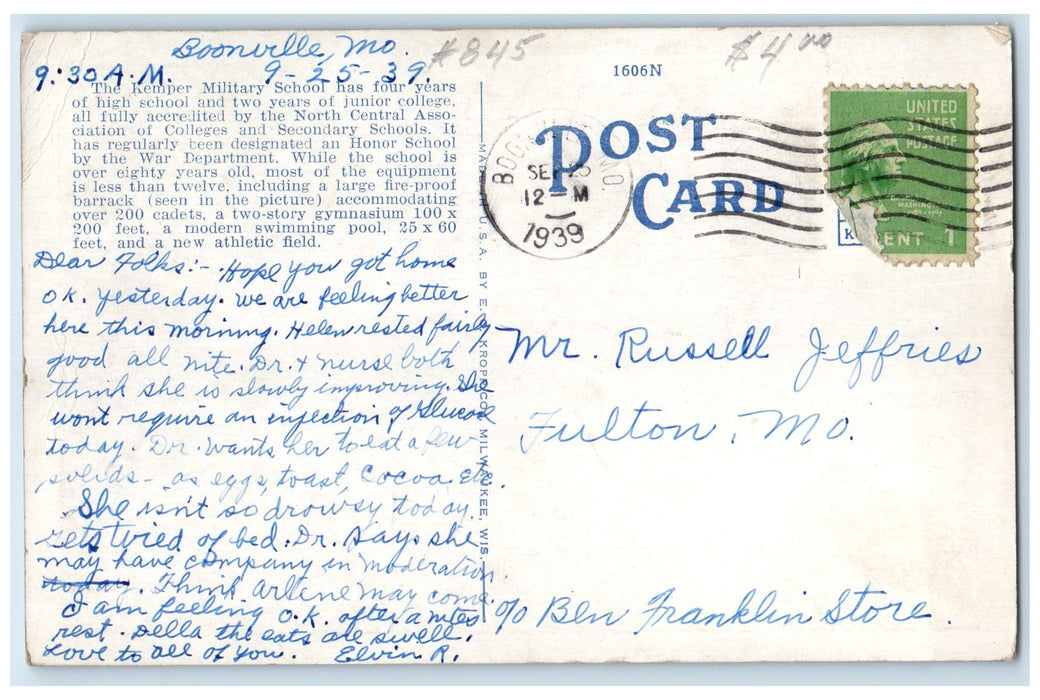 Boonville, Mo.
9:30 A.M. 9-25-39.
#845
$4.00
1606N
The Kemper Military School has four years
of high school and two years of junior college,
all fully accredited by the North Central Asso-
ciation of Colleges and Secondary Schools. It
has regularly been designated an Honor School
by the War Department. While the school is
over eighty years old, most of the equipment
is less than twelve, including a large fire-proof
barrack (seen in the picture) accommodating
over 200 cadets, a two-story gymnasium 100 x
200 feet, a modern swimming pool, 25 x 60
feet, and a new athletic field.
Dear Folks:- Hope you got home
O.K. yesterday. We are feeling better
here this morning. Helen rested fairly
good all nite. Dr. & nurse both
think she is slowly improving. She
wont require an injection of Glucose
today. Dr. wants her to eat a few
solids - as eggs, toast, Cocoa etc.
She isn't so drowsy today.
Gets tired of bed. Dr. says she
may have company in moderation.
today. Think Arlene may come.
I am feeling O.K. after a nites
rest. Della the eats are swell.
Love to all of you. Elvin R.
MADE IN U.S.A. BY E. C. KROPP CO., MILWAUKEE, WIS.
POST
CARD
BOONVILLE MO.
SEP 25
12 - M
1939
UNITED
STATES
POSTAGE
WASHINGTON
1789-1797
CENT 1
Mr. Russell Jeffries
Fulton, Mo.
c/o Ben Franklin Store.